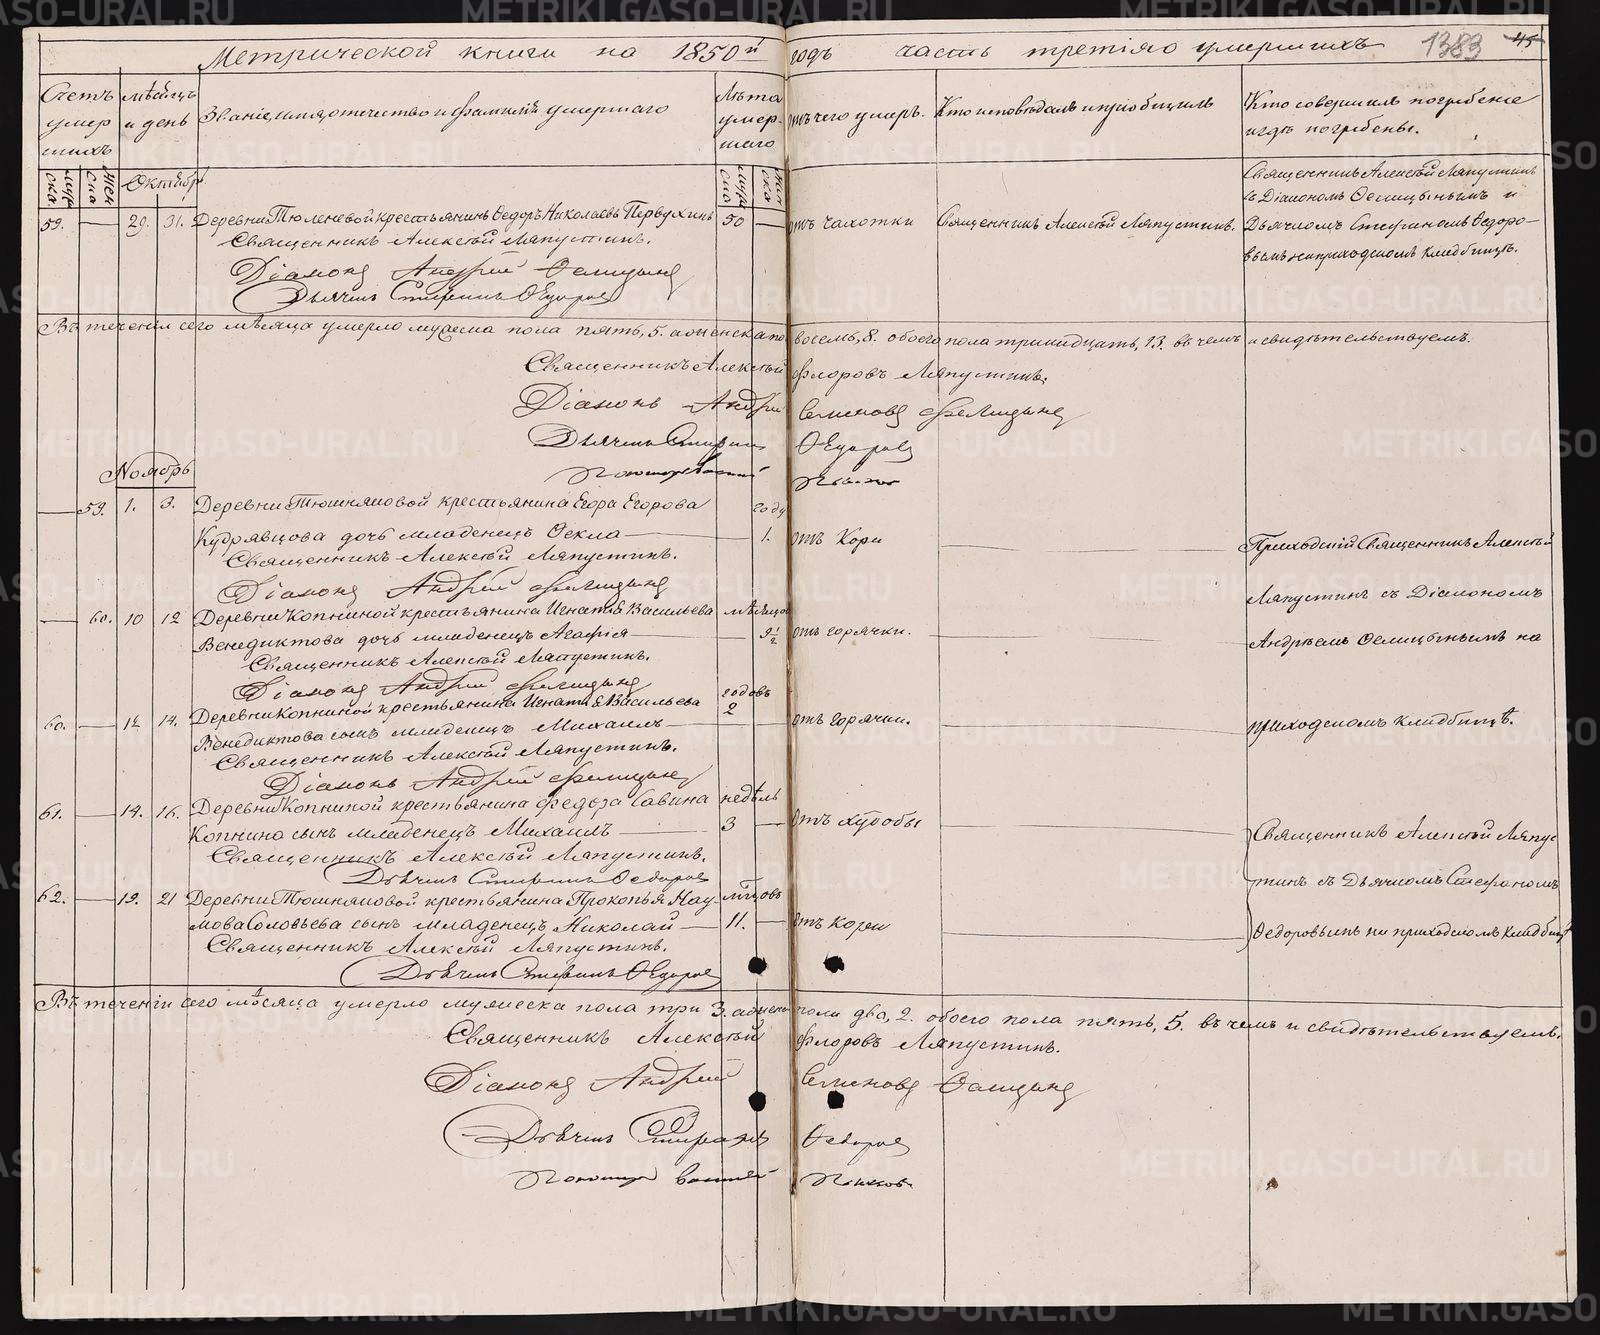 Метрической книги на 1850й годъ часть третія о умершихъ 1383 45
Счетъ умершихъ
мѣсяцъ и день
Званіе, имя, отчество и фамилія умершаго
Лѣта умершаго
отъ чего умеръ.
Кто исповѣдалъ и пріобщилъ
Кто совершилъ погребеніе и гдѣ погребены.
Октябрь
59. — 29. 31. Деревни Тюленевой крестьянинъ Ѳедоръ Николаевъ Первухинъ 50 — отъ чахотки Священникъ Алексѣй Ляпустинъ.
Священникъ Алексѣй Ляпустинъ
съ Діакономъ Ѳелицынымъ и
Дьячкомъ Стефаномъ Ѳедоро-
вымъ на приходскомъ кладбищѣ.
Священникъ Алексѣй Ляпустинъ.
Діаконъ Андрей Ѳелицынъ
Дьячекъ Стефанъ Ѳедоровъ
Въ теченіи сего мѣсяца умерло мужеска пола пять, 5. а женска по восемь, 8. обоего пола тринадцать, 13. въ чемъ и свидѣтельствуемъ.
Священникъ Алексѣй Флоровъ Ляпустинъ.
Діаконъ Андрей Семеновъ Фелицынъ
Дьячекъ Стефанъ Ѳедоровъ
Пономарь
Ноябрь
— 59. 1. 3. Деревни Тюшняковой крестьянина Егора Егорова году
Кудрявцова дочь младенецъ Ѳекла — 1. отъ Кори
Священникъ Алексѣй Ляпустинъ.
Діаконъ Андрей Фелицынъ
— 60. 10 12 Деревни Копниной крестьянина Игнатія Васильева мѣсяцовъ
Венедиктова дочь младенецъ Агафія — 9 1/2 отъ горячки.
Священникъ Алексѣй Ляпустинъ.
Діаконъ Андрей Фелицынъ
60. — 12 14. Деревни Копниной крестьянина Игнатія Васильева годовъ 2
Венедиктова сынъ младенецъ Михаилъ — отъ горячки.
Священникъ Алексѣй Ляпустинъ.
Діаконъ Андрей Фелицынъ
Приходскій Священникъ Алексѣй
Ляпустинъ съ Діакономъ
Андреемъ Ѳелицынымъ на
приходскомъ кладбищѣ.
61. — 14. 16. Деревни Копниной крестьянина Федора Савина недѣль
Копнина сынъ младенецъ Михаилъ — 3 — отъ худобы
Священникъ Алексѣй Ляпустинъ.
Дьячекъ Стефанъ Ѳедоровъ
62. — 19. 21 Деревни Тюшняковой крестьянина Прокопья Нау- мѣсцовъ
мова Соловьева сынъ младенецъ Николай — 11. — отъ Кореи
Священникъ Алексѣй Ляпустинъ.
Дьячекъ Стефанъ Ѳедоровъ
Священникъ Алексѣй Ляпус
тинъ съ Дьячкомъ Стефаномъ
Ѳедоровымъ на приходскомъ кладбищѣ
Въ теченіи сего мѣсяца умерло мужеска пола три 3. а женска пола два, 2. обоего пола пять, 5. въ чемъ и свидѣтельствуемъ.
Священникъ Алексѣй Флоровъ Ляпустинъ.
Діаконъ Андрей Семеновъ Ѳелицынъ
Дьячекъ Стефанъ Ѳедоровъ
Пономарь
METRIKI.GASO-URAL.RU